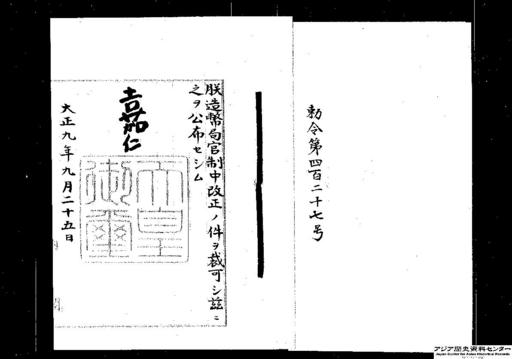 勅令第四百二十七号
朕造幣局官制中改正ノ件ヲ裁可シ茲ニ
之ヲ公布セシム
嘉仁
天皇
御璽
大正九年九月二十五日
アジア歴史資料センター
Japan Center for Asian Historical Records